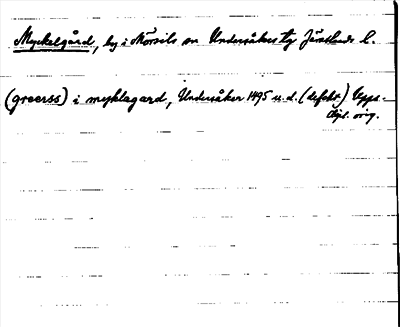 Myckelgård, by i Mörsils sn Undersåkers tg Jämtlands l.
(greerss) i myklagard, Undersåker 1495 u.d. (defekt.) Upps.
dipl. orig.